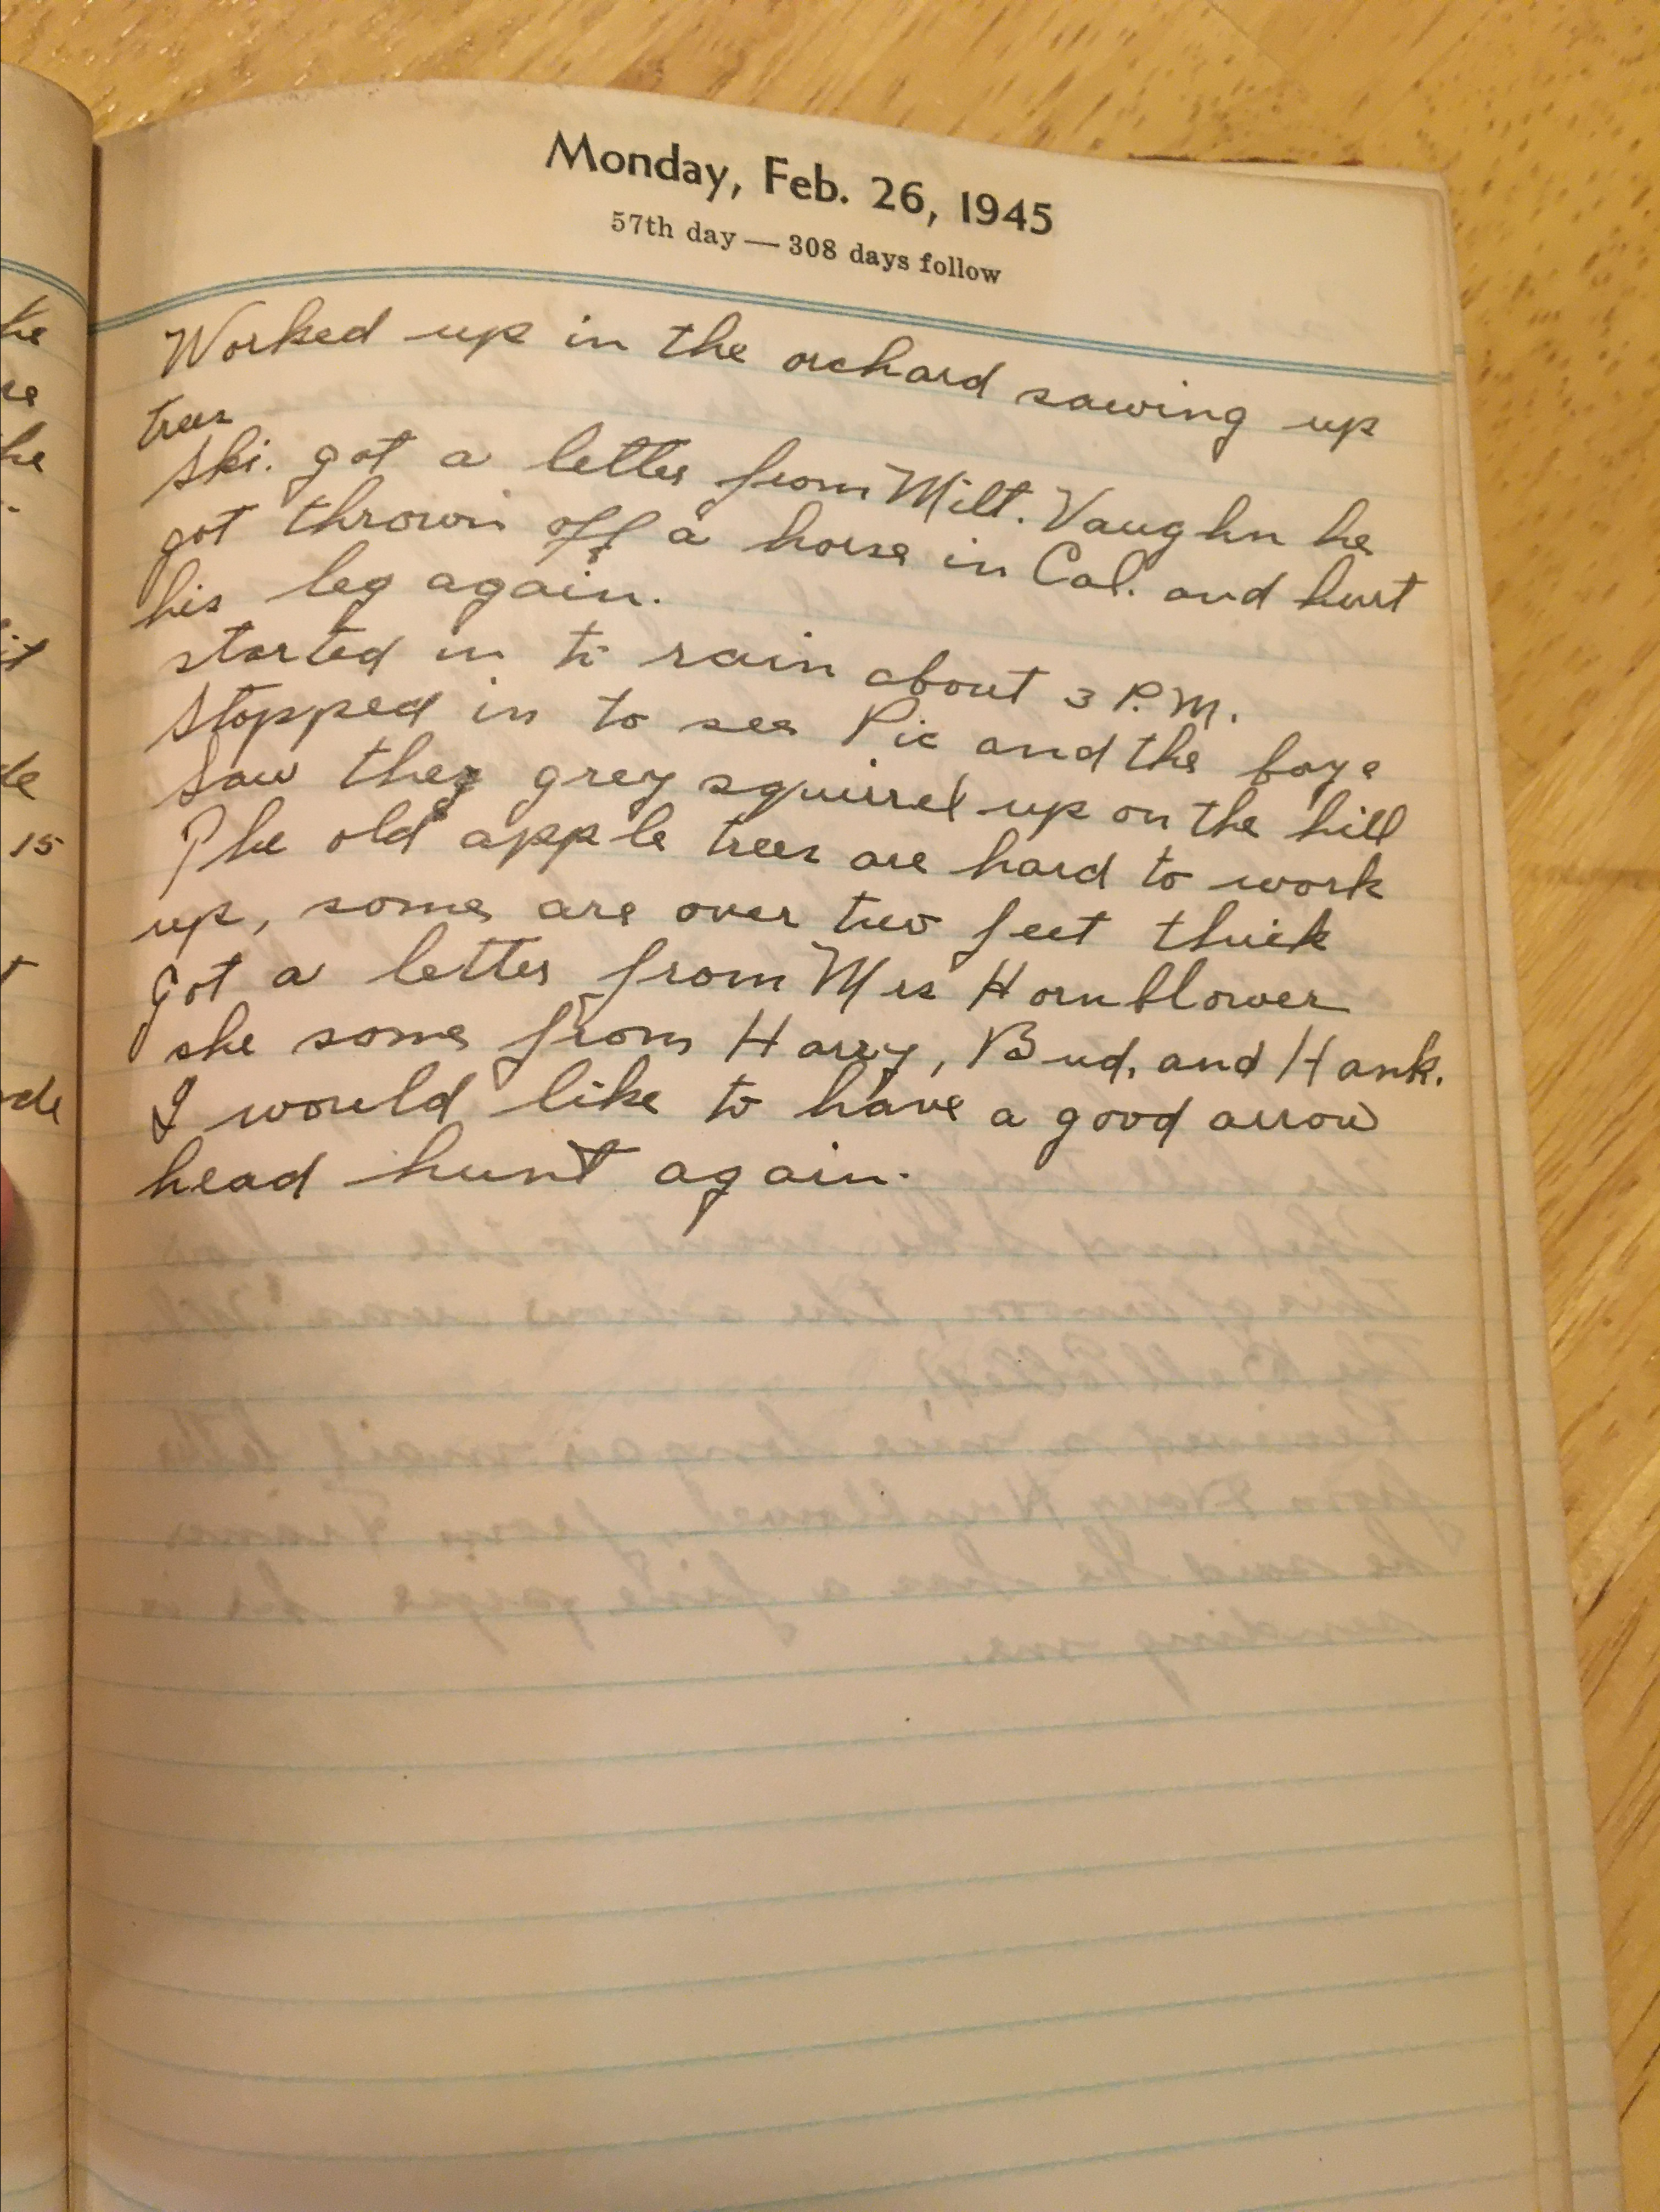 Monday, Feb. 26, 1945
57th day — 308 days follow
Worked up in the orchard sawing up
trees
Ski. got a letter from Milt. Vaughn he
got thrown off a horse in Cal. and hurt
his leg again.
started in to rain about 3 P.M.
Stopped in to see Pic and the boys
Saw grey squirrel up on the hill
The old apple trees are hard to work
up, some are over two feet thick
Got a letter from Mrs Hornblower
she some from Harry, Bud, and Hank.
I would like to have a good arrow
head hunt again.
15